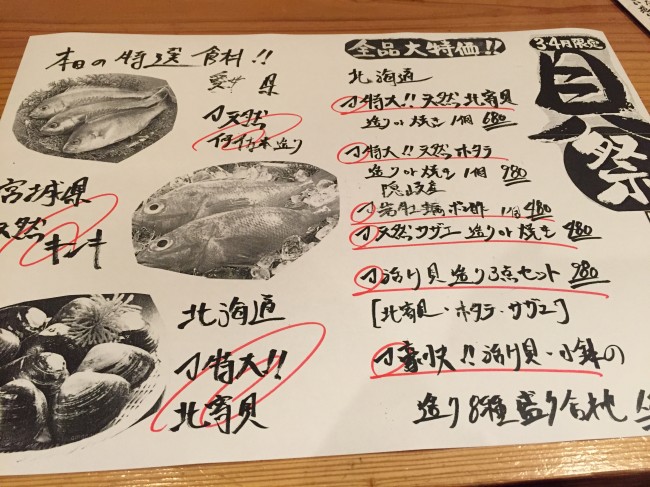 本日の特選食材!!
愛媛県
天然
イサギ造り
宮城県
天然
キンキ
北海道
特大!!
北寄貝
全品大特価!!
3・4月限定
貝祭
北海道
特大!! 天然 北寄貝
造り or 焼き 1個 680
特大!! 天然 ホタテ
造り or 焼き 1個 980
隠岐産
岩牡蠣ポン酢 1個 480
天然サザエ 造り or 焼き 480
活け貝 造り 3点セット 980
[北寄貝・ホタテ・サザエ]
豪快!! 活け貝・小鉢の
造り 8種盛り合わせ